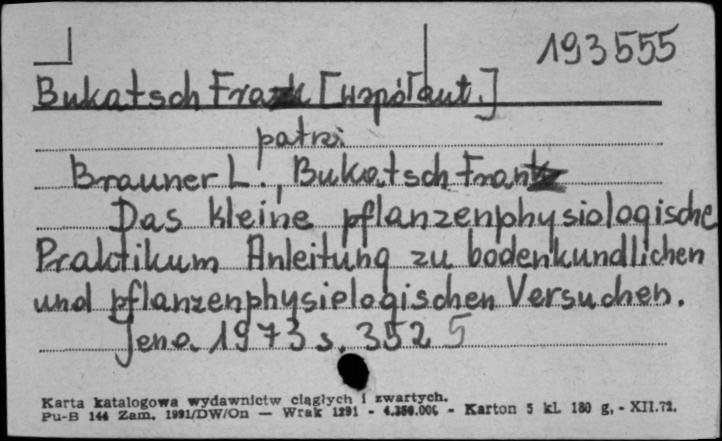 193555
Bukatsch Frank [współaut.]
patrz
Brauner L., Bukatsch Frank
Das kleine pflanzenphysiologische
Praktikum Anleitung zu bodenkundlichen
und pflanzenphysiologischen Versuchen.
Jena 1973 s. 352 5
Karta katalogowa wydawnictw ciągłych i zwartych.
Pu-B 144 Zam. 1991/DW/On — Wrak 1291 - 4.350.000 - Karton 5 kl. 180 g. - XII.72.